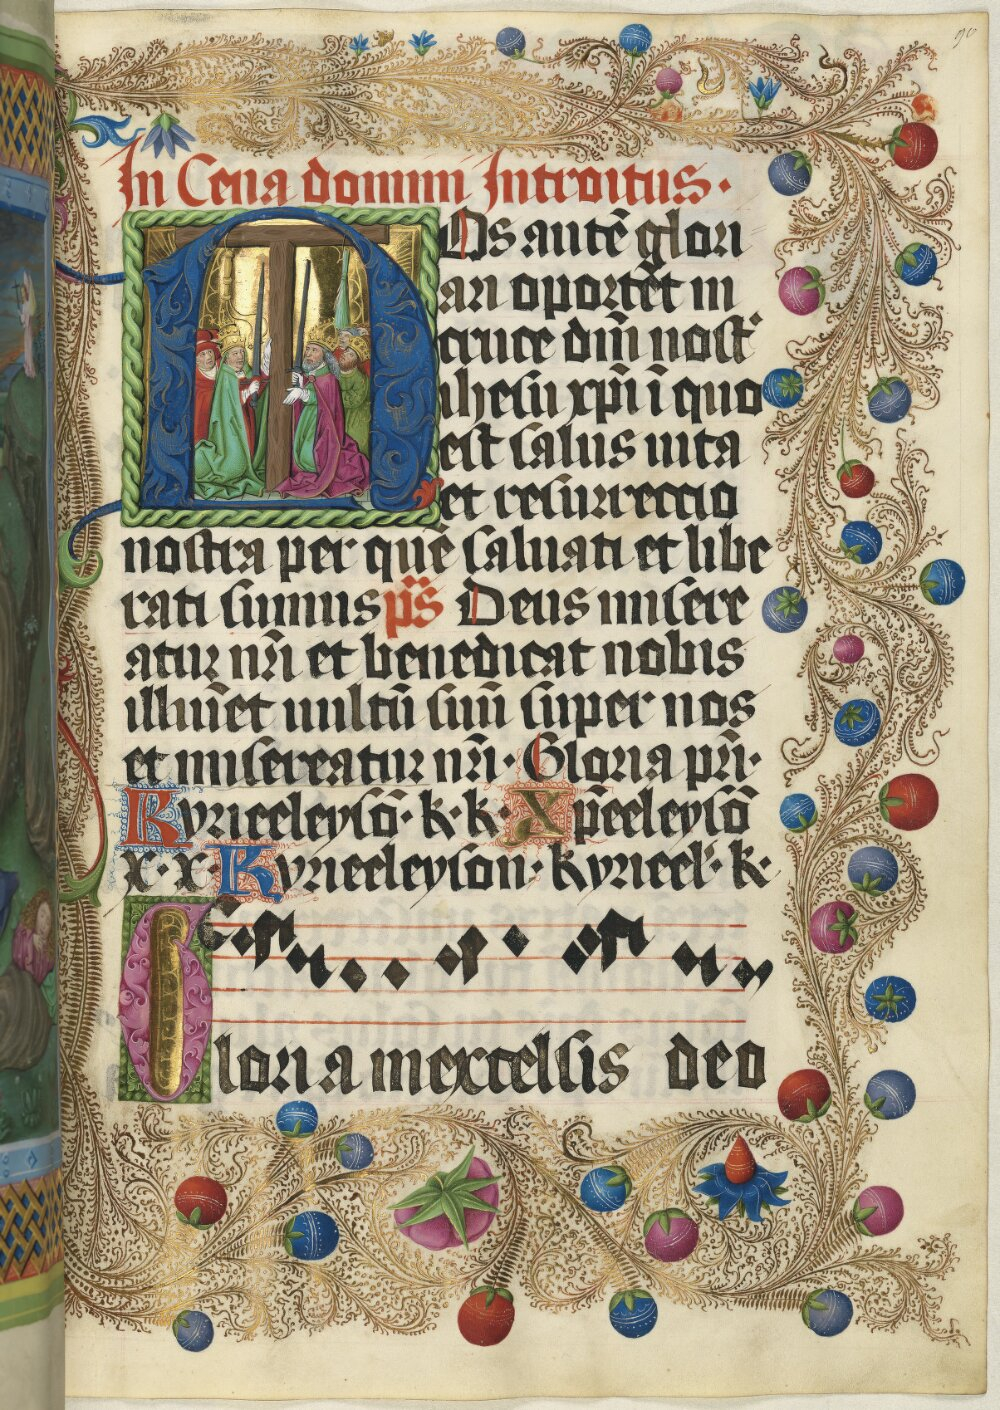 90
In Cena domini Introitus.
NOs autē glori
ari oportet in
cruce dn̄i nost᷑
ihesu xp̄i ī quo
est salus uita
et resurreccio
nostra per quē saluati et libe
rati sumus ps̄ Deus misere
atur nr̄i et benedicat nobis
illūet uultū suū super nos
et misereatur nr̄i. Gloria pr̄i.
Kyrieeleysō. k. k. Xp̄eeleysō
x. x. Kyrieeleyson. Kyrieel'. k.
Gloria in excelsis deo